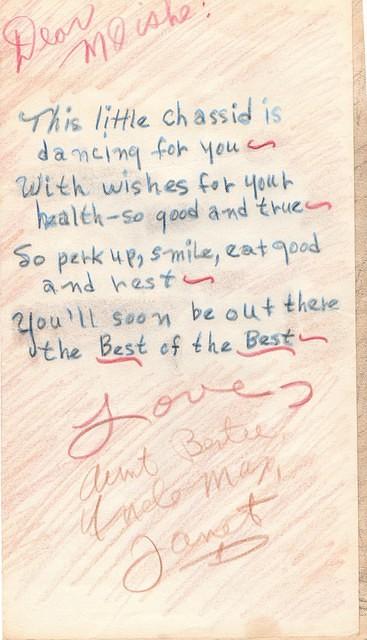 Dear Moishe!
This little chassid is
dancing for you ~
With wishes for your
health-so good and true ~
So perk up, smile, eat good
and rest ~
You'll soon be out there
the Best of the Best ~
Love,
Aunt Bertie,
Uncle Max,
Janet